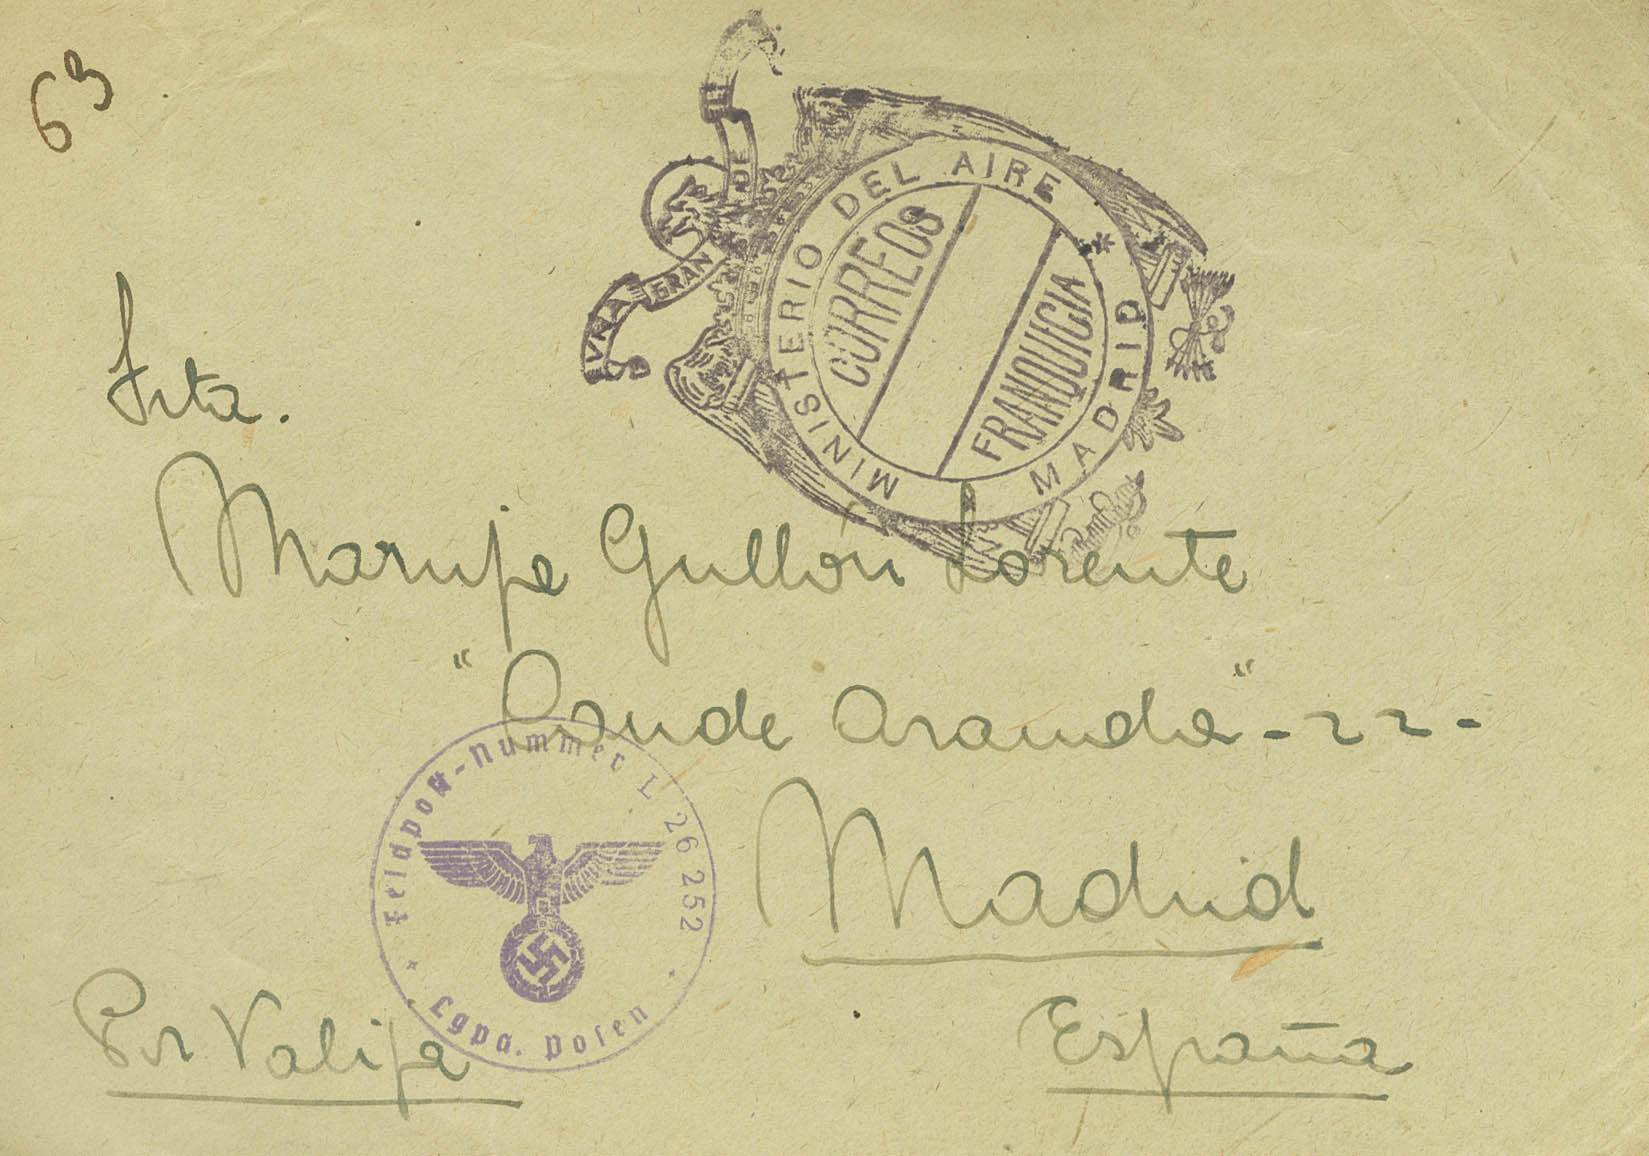 63
UNA GRAN DE
MINISTERIO DEL AIRE
CORREOS
FRANQUICIA
* MADRID
Srta.
Maruja Gullón Lorente
"Conde Aranda" - 22 -
Madrid
España
Por Valija
Feldpost-Nummer L 26 252
Lgpa. Posen